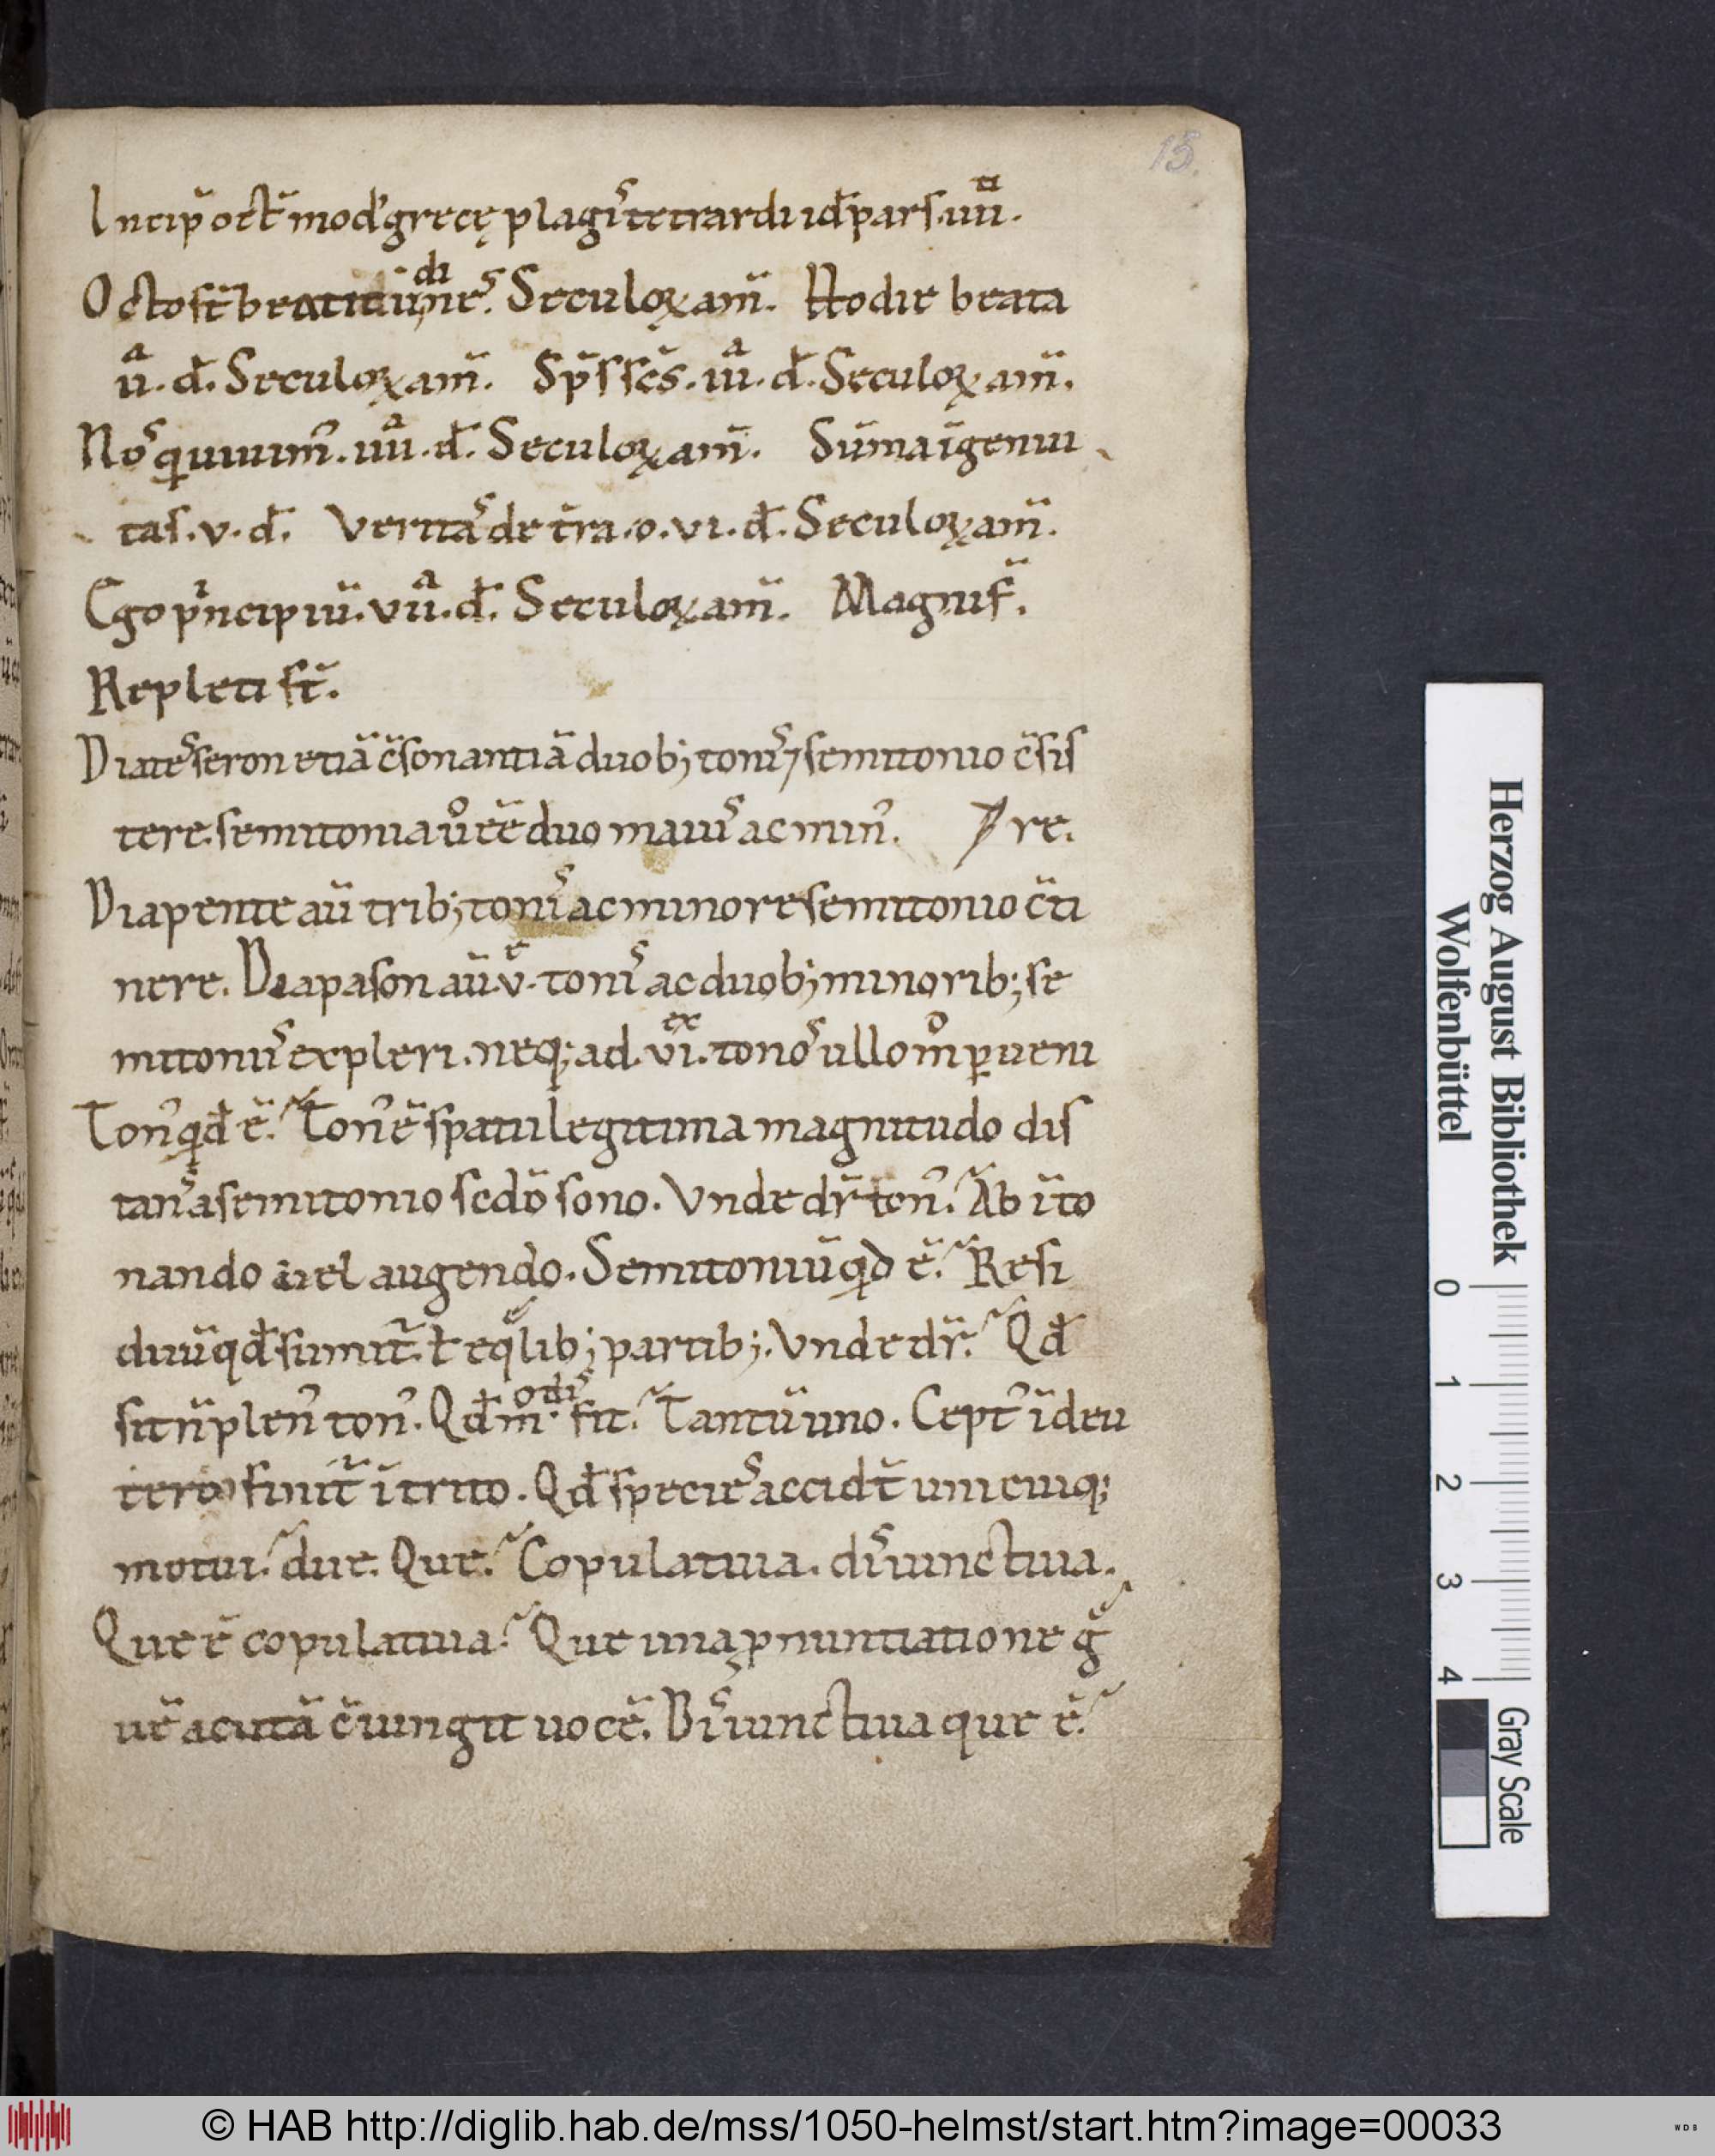 15.
Incip̄ oct̄ mod' grecę plagıˢ tetrardi id̄ pars .iiii.ᵗⁱ
Octo st̄ beatitudineˢ. Seculoꝝ am̄. Hodie beata
ii.ᵃ d̄. Seculoꝝ am̄. Sp̄s sc̄s. iii.ᵃ d̄. Seculoꝝ am̄.
Noˢ qui uiuim᾽. iiii.ᵃ d̄. Seculoꝝ am̄. Sūma īgenui
tas. v. d̄. Veritaˢ de t̄ra. o. vi. d̄. Seculoꝝ am̄.
Ego pⁱncipiū. vii.ᵃ d̄. Seculoꝝ am̄. Magnif̄.
Repleti st̄.
Diateˢseron etiā c̄sonantiā duob; toniˢ ⁊ semitonio c̄sis
tere. semitonia ů eē duo maiuˢ ac min᾽. re.
Diapente aū trib; toniˢ ac minore semitonio c̄ti
nere. Diapason aū .v.ᵉ toniˢ ac duob; minorib; se
mitoniiˢ expleri. neq; ad .vi.ᵉˣ tonoˢ ullo m̊ ꝑueni
Ton᾽ qid̄ ē? Ton᾽ ē spatii legitima magnitudo dis
tanˢ a semitonio sc̄dō sono. Vnde dr̄ ton᾽? Ab īto
nando uel augendo. Semitoniū qid ē? Resi
duū qd̄ sumit̄ ł eqᵃlib; partib;. Vnde dr̄? Qd̄
sit n̄ plen᾽ ton᾽. Qd̄ m.ᵒᵈⁱˢ fit? Tantū uno. Cept᾽ ī deu
tero finit̄ ī trito. Qd̄ specieˢ accidt̄ unicuiq;
motui? due. Que? Copulatiua. diˢiunctiua.
Que ē copulatiua? Que una ꝓnuntiatione gᵃ
uē acutā c̄iungit uocē. Diˢiunctiua que ē?
Herzog August Bibliothek
Wolfenbüttel
0 1 2 3 4
Gray Scale
© HAB http://diglib.hab.de/mss/1050-helmst/start.htm?image=00033
WDB